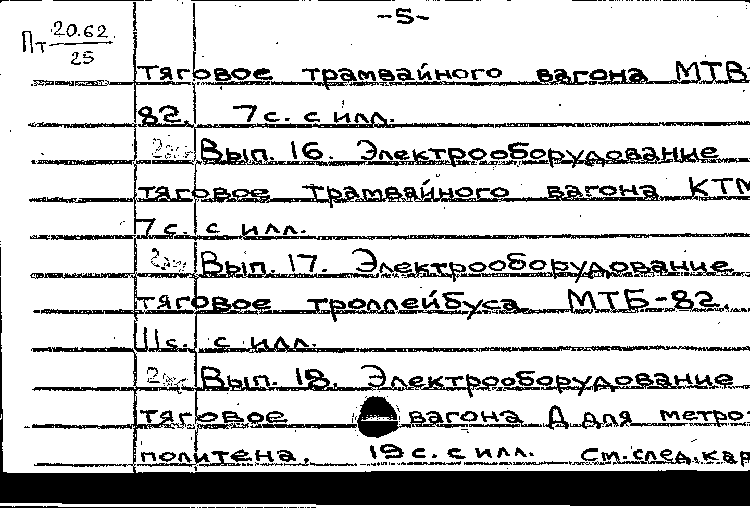 -5-
Пт 20.62
25
тяговое трамвайного вагона МТВ-
82. 7с. с илл.
2экз Вып. 16. Электрооборудование
тяговое трамвайного вагона КТМ
7с. с илл.
2экз Вып. 17. Электрооборудование
тяговое троллейбуса МТБ-82.
11с. с илл.
2экз Вып. 18. Электрооборудование
тяговое вагона Д для метро-
политена. 19с. с илл. См. след. кар